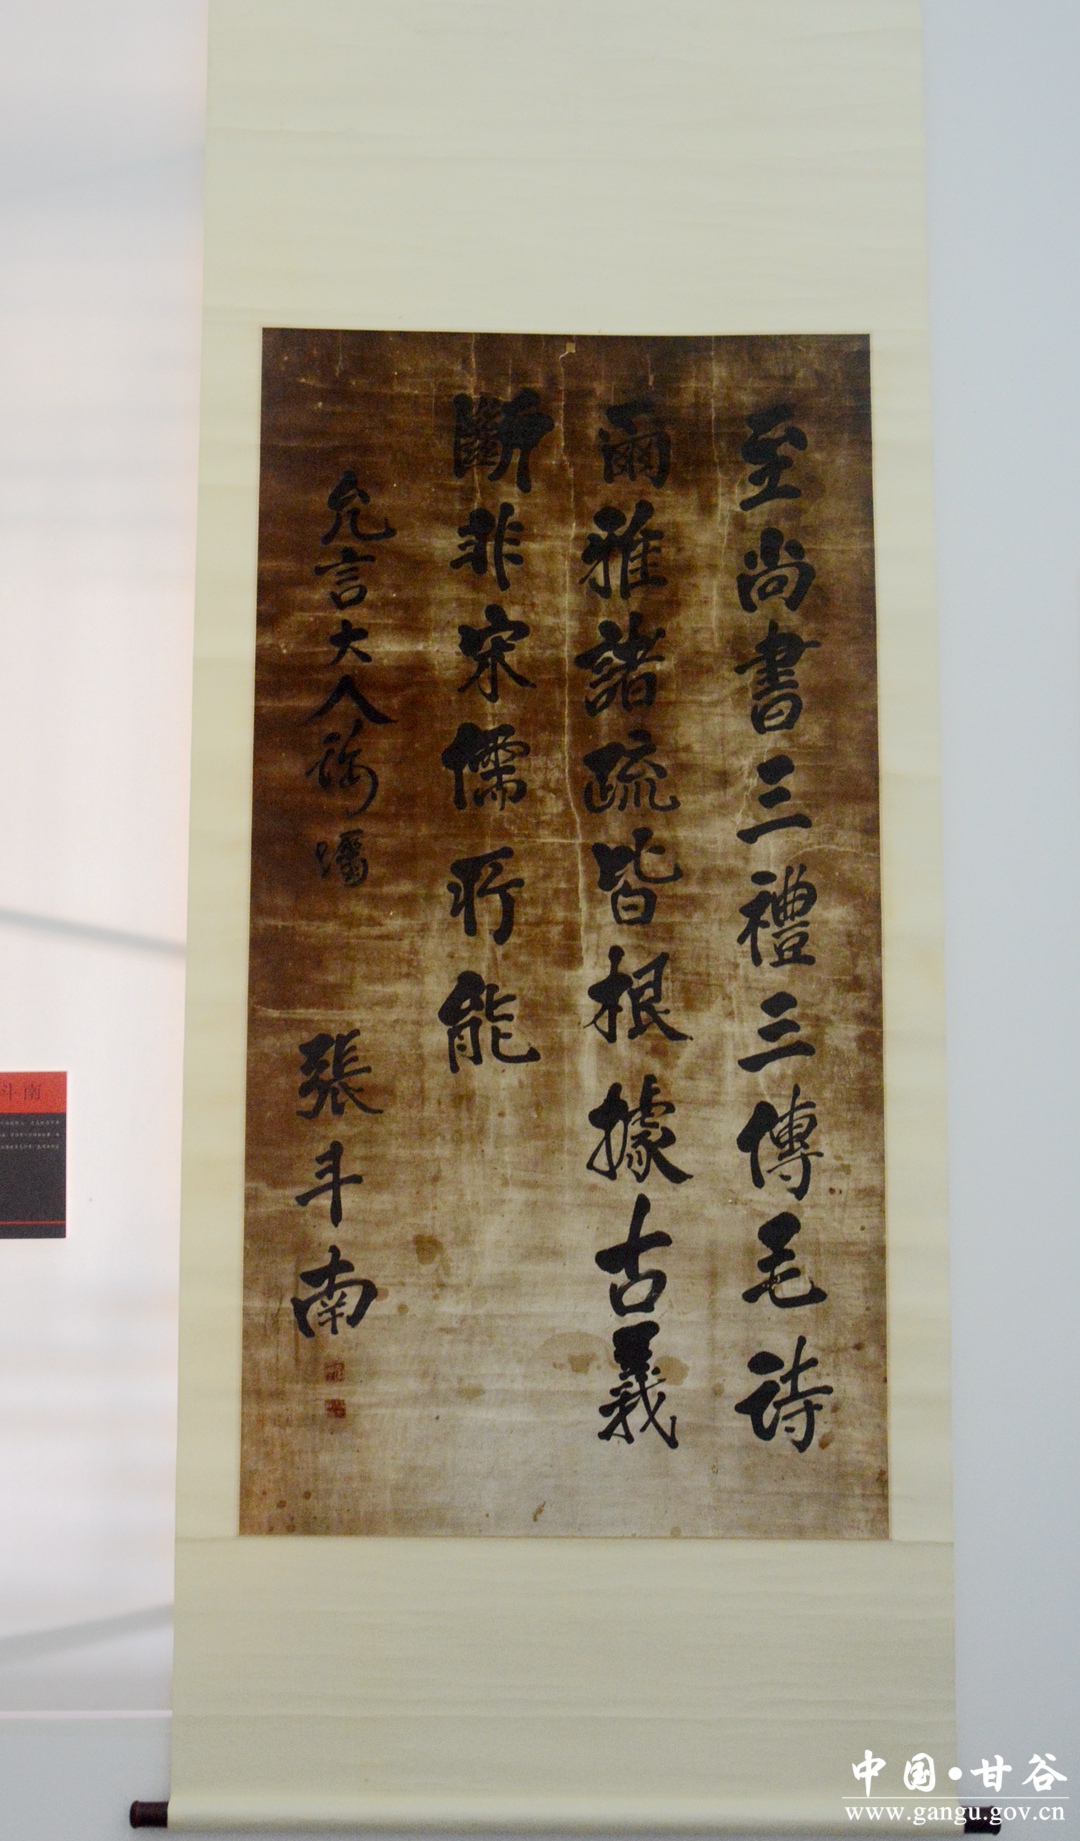 至尚書三禮三傳毛詩
爾雅諸疏皆根據古義
斷非宋儒所能
允言大人雅囑
張斗南
斗南
中国·甘谷
www.gangu.gov.cn